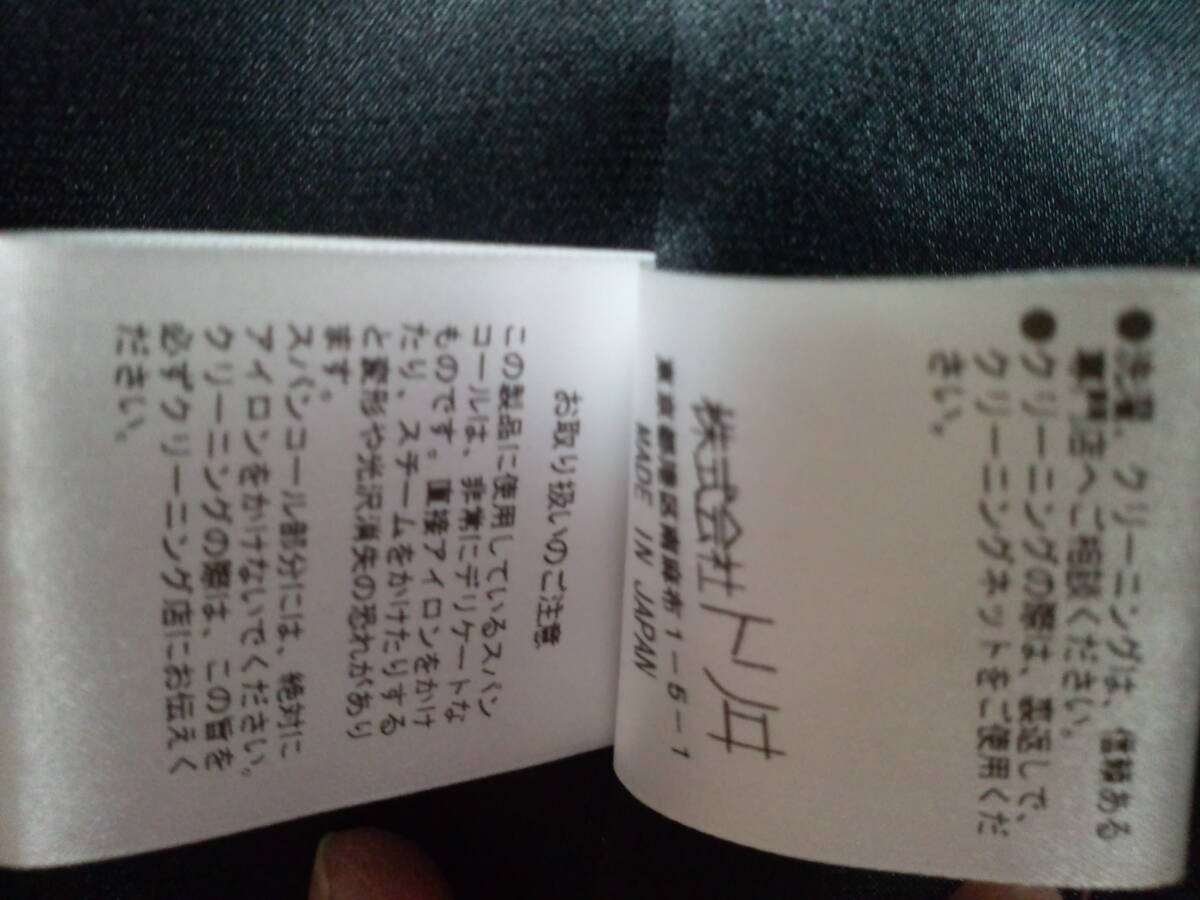 お取り扱いのご注意
この製品に使用しているスパン
コールは、非常にデリケートな
ものです。直接アイロンをかけ
たり、スチームをかけたりする
と変形や光沢消失の恐れがあり
ます。
スパンコール部分には、絶対に
アイロンをかけないでください。
クリーニングの際は、この旨を
必ずクリーニング店にお伝えく
ださい。
●洗濯、クリーニングは、信頼ある
専門店へご相談ください。
●クリーニングの際は、裏返しで、
クリーニングネットをご使用くだ
さい。
株式会社
東京都港区麻布1-5-1
MADE IN JAPAN